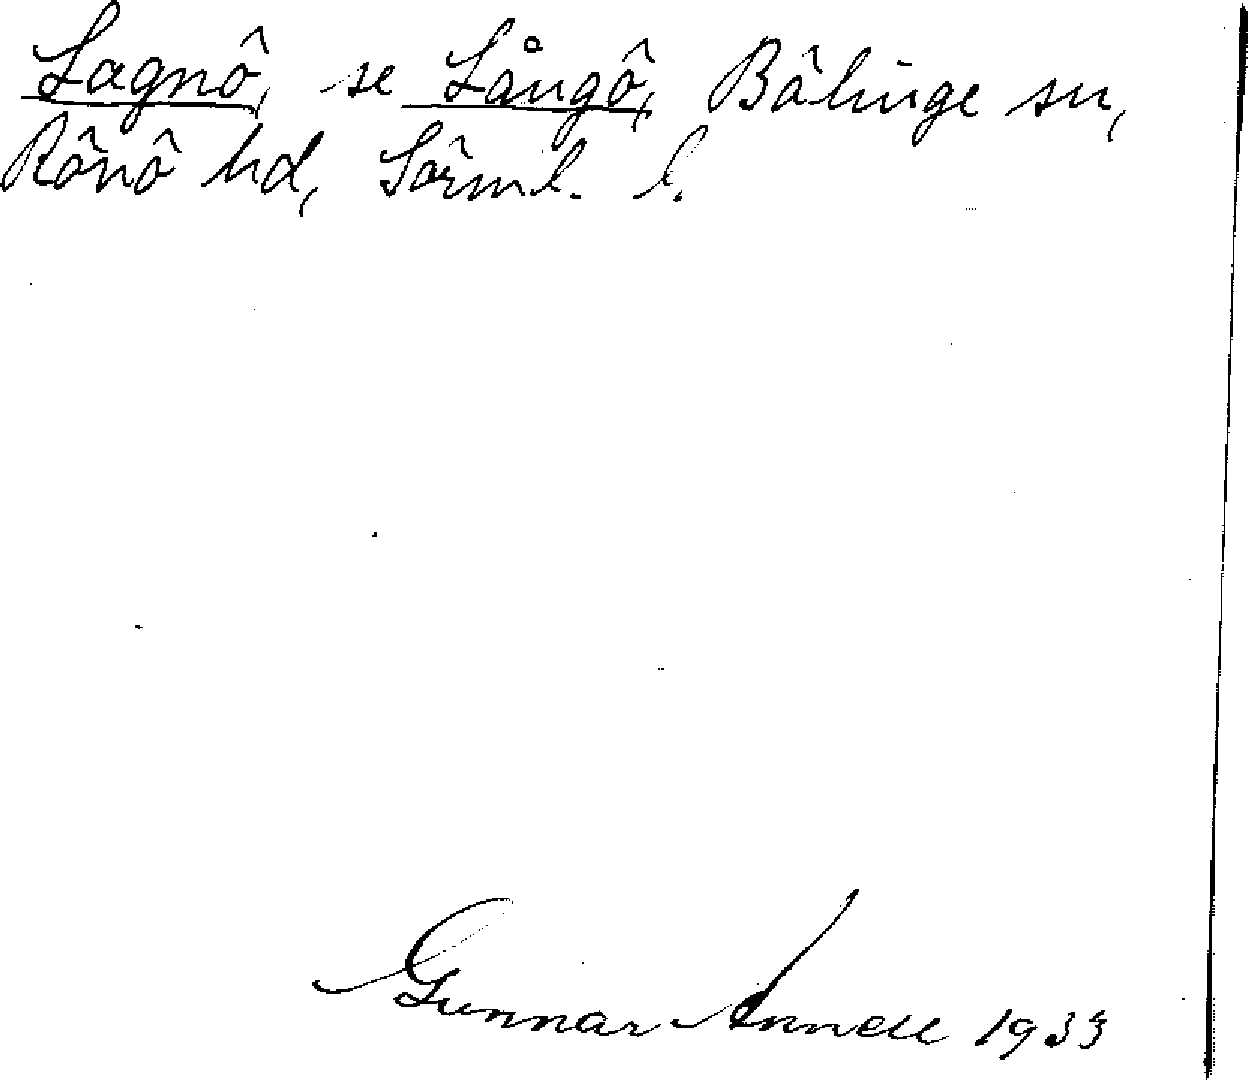 Lagnö, se Långö, Bälinge sn,
Rönö hd, Sörml. l.
Gunnar Annell 1933